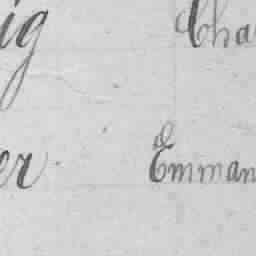 ig Cha
er Emman